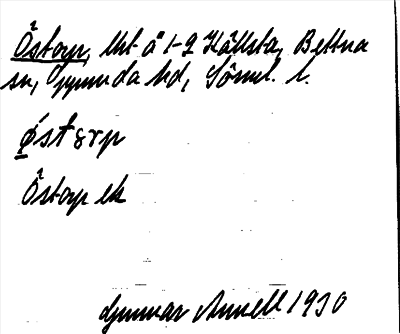 Östorp, lht å 1-2 Hällsta, Bettna
sn, Oppunda hd, Sörml. l.
ø̀st ɷrp
Östorp ek
Gunnar Annell 1930